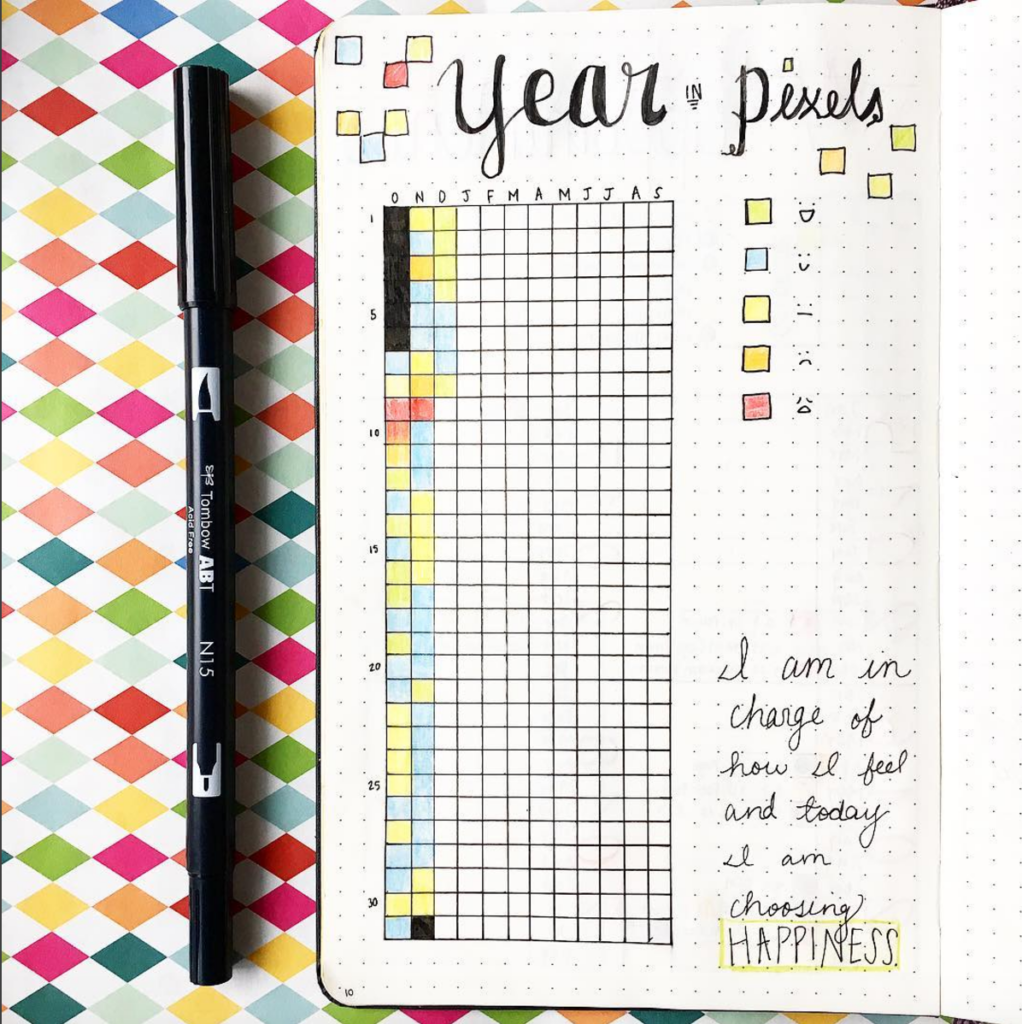 Year IN Pixels
O N D J F M A M J J A S
1
5
10
15
20
25
30
I am in
charge of
how I feel
and today
I am
choosing
HAPPINESS.
10
Tombow ABT
Acid Free
N15